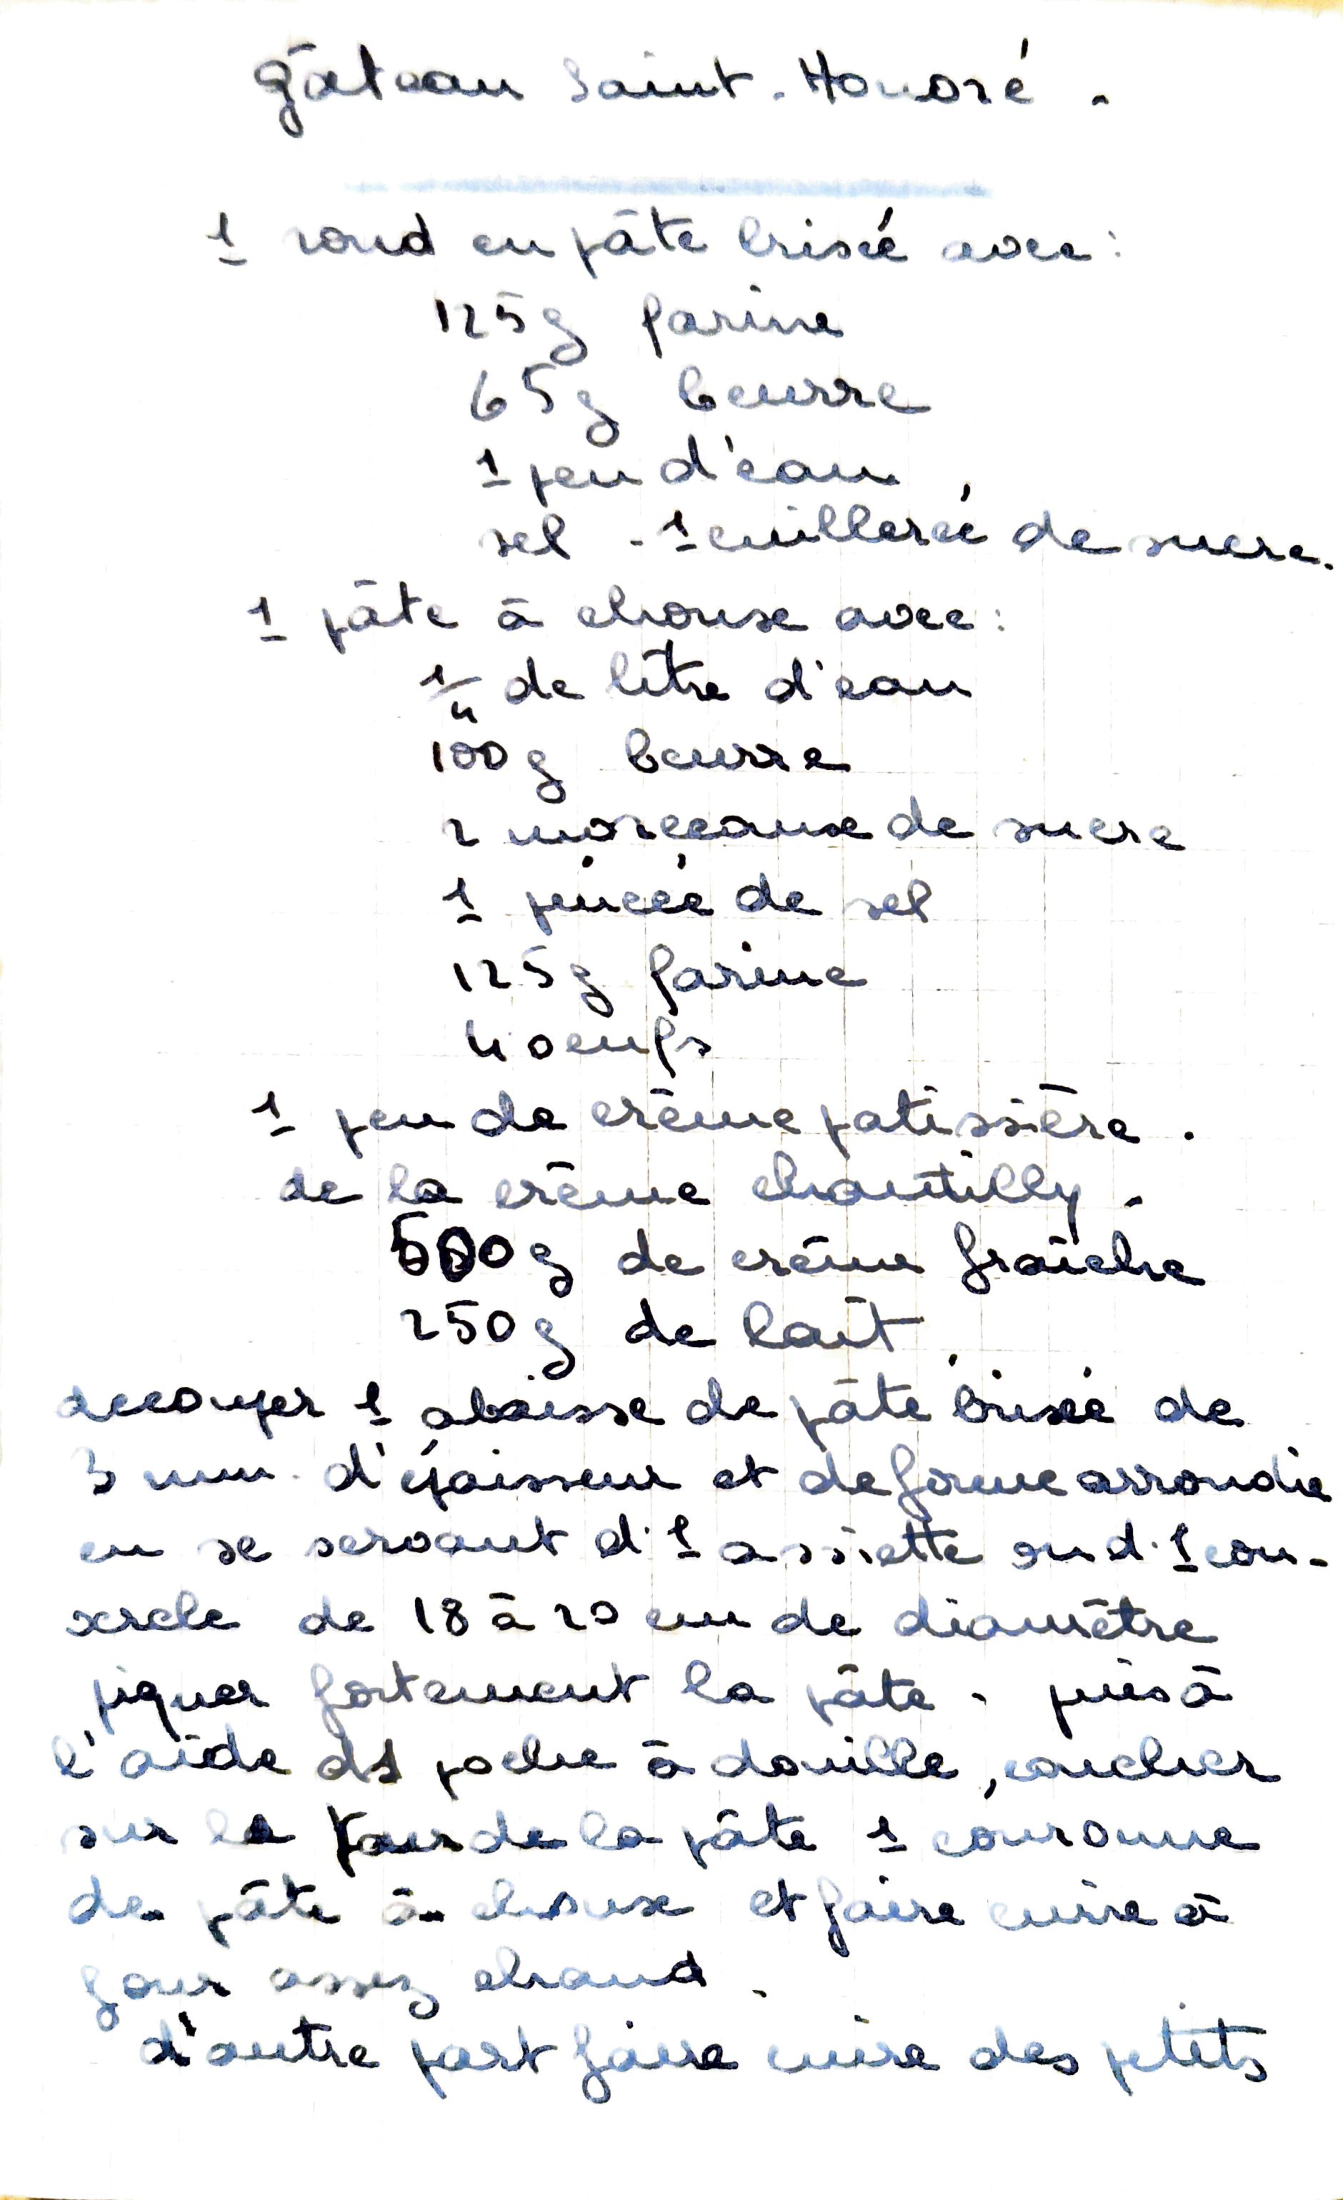 Gâteau Saint-Honoré.
1 rond en pâte brisée avec:
125g farine
65g beurre
1 peu d'eau
sel - 1 cuillerée de sucre.
1 pâte à choux avec:
1/4 de litre d'eau
100g beurre
2 morceaux de sucre
1 pincée de sel
125g farine
4 oeufs
1 peu de crème patissière.
de la crème chantilly.
500g de crème fraîche
250g de lait
decouper 1 abaisse de pâte brisée de
3 mm d'épaisseur et de forme arrondie
en se servant d'1 assiette ou d'1 cou-
vercle de 18 à 20 cm de diamètre
piquer fortement la pâte. puis à
l'aide d1 poche à douille, coucher
sur le de la pâte 1 couronne
de pâte à choux et faire cuire à
four assez chaud.
d'autre part faire cuire des petits